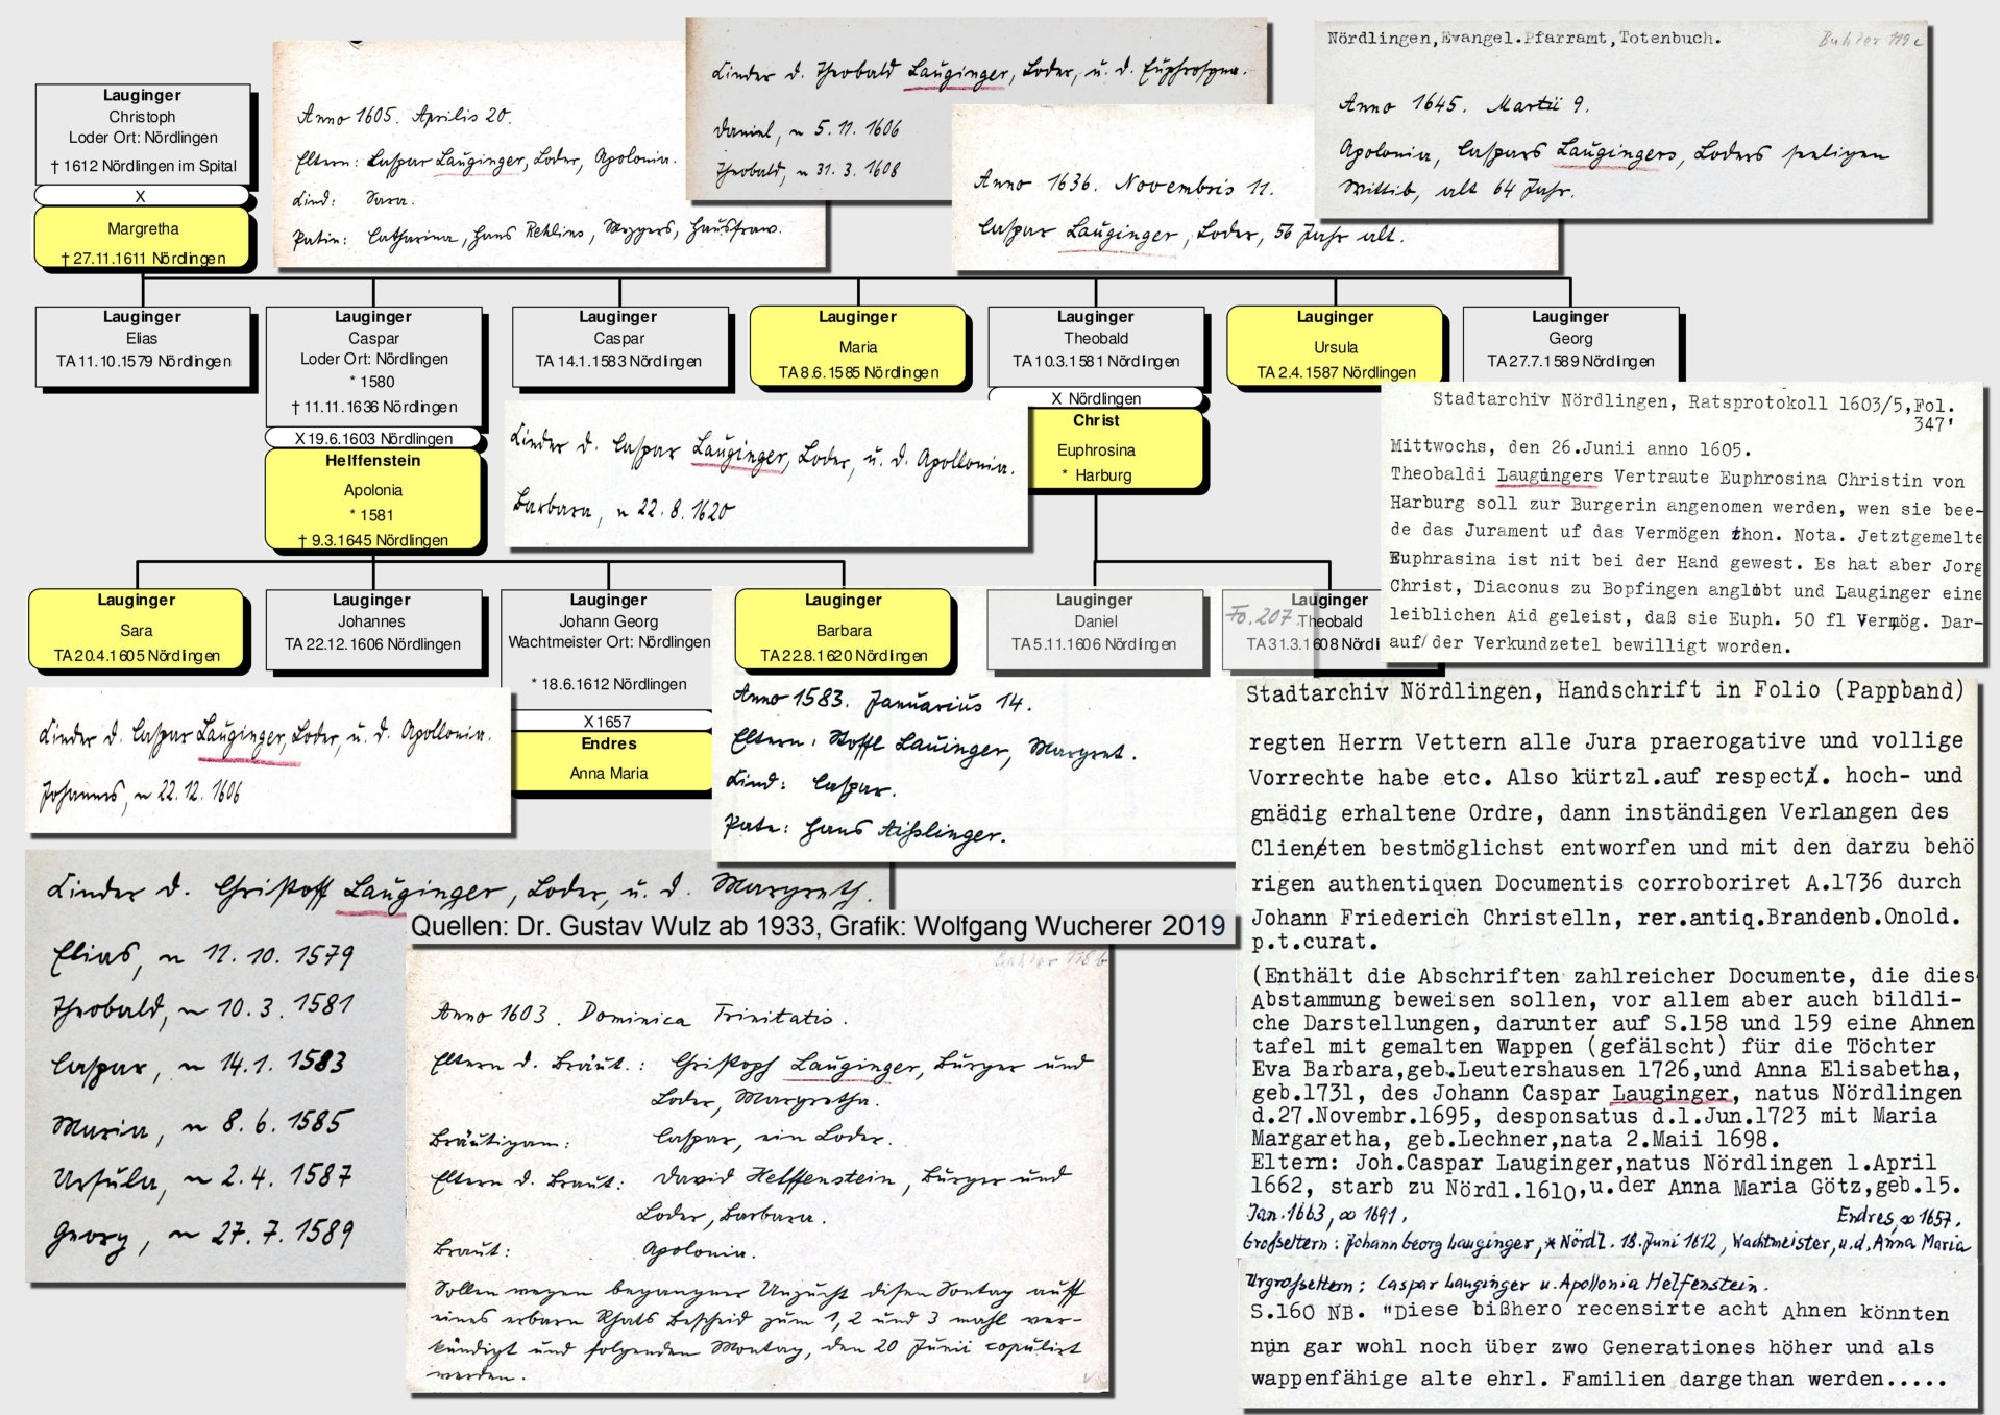 Lauginger
Christoph
Loder Ort: Nördlingen
† 1612 Nördlingen im Spital
X
Margretha
† 27.11.1611 Nördlingen
Anno 1605. Aprilis 20.
Eltern: Caspar Lauginger, Loder, Apolonia.
Kind: Sara.
Patin: Catharina, Hans Rehlins, Mezgers, Hausfraw.
Kinder d. Theobald Lauginger, Loder, u. d. Euphrosyna.
Daniel, ~ 5. 11. 1606
Theobald, ~ 31. 3. 1608
Anno 1636. Novembris 11.
Caspar Lauginger, Loder, 56 Jahr alt.
Nördlingen, Evangel. Pfarramt, Totenbuch.
119 c
Anno 1645. Martii 9.
Apolonia, Caspars Laugingers, Loders seeligen
Wittib, alt 64 Jahr.
Lauginger
Elias
TA 11.10.1579 Nördlingen
Lauginger
Caspar
Loder Ort: Nördlingen
* 1580
† 11.11.1636 Nördlingen
X 19.6.1603 Nördlingen
Helffenstein
Apolonia
* 1581
† 9.3.1645 Nördlingen
Lauginger
Caspar
TA 14.1.1583 Nördlingen
Lauginger
Maria
TA 8.6.1585 Nördlingen
Lauginger
Theobald
TA 10.3.1581 Nördlingen
X Nördlingen
Christ
Euphrosina
* Harburg
Lauginger
Ursula
TA 2.4.1587 Nördlingen
Lauginger
Georg
TA 27.7.1589 Nördlingen
Kinder d. Caspar Lauginger, Loder, u. d. Apollonia.
Barbara, ~ 22. 8. 1620
Stadtarchiv Nördlingen, Ratsprotokoll 1603/5, Fol.
347'
Mittwochs, den 26.Junii anno 1605.
Theobaldi Laugingers Vertraute Euphrosina Christin von
Harburg soll zur Burgerin angenomen werden, wen sie bee-
de das Jurament uf das Vermögen thon. Nota. Jetztgemelte
Euphrasina ist nit bei der Hand gewest. Es hat aber Jorg
Christ, Diaconus zu Bopfingen anglobt und Lauginger eine
leiblichen Aid geleist, daß sie Euph. 50 fl Vermög. Dar-
auf/ der Verkundzetel bewilligt worden.
Lauginger
Sara
TA 20.4.1605 Nördlingen
Lauginger
Johannes
TA 22.12.1606 Nördlingen
Lauginger
Johann Georg
Wachtmeister Ort: Nördlingen
* 18.6.1612 Nördlingen
X 1657
Endres
Anna Maria
Lauginger
Barbara
TA 22.8.1620 Nördlingen
Lauginger
Daniel
TA 5.11.1606 Nördlingen
Fo. 207
Lauginger
Theobald
TA 31.3.1608 Nördl
Kinder d. Caspar Lauginger, Loder, u. d. Apollonia.
Johannes, ~ 22. 12. 1606
Anno 1583. Januarius 14.
Eltern: Stoffl Lauinger, Margret.
Kind: Caspar.
Pate: Hans Aißlinger.
Kinder d. Christoff Lauginger, Loder, u. d. Margreth.
Elias, ~ 11. 10. 1579
Theobald, ~ 10. 3. 1581
Caspar, ~ 14. 1. 1583
Maria, ~ 8. 6. 1585
Ursula, ~ 2. 4. 1587
Georg, ~ 27. 7. 1589
Quellen: Dr. Gustav Wulz ab 1933, Grafik: Wolfgang Wucherer 2019
Anno 1603. Dominica Trinitatis.
Eltern d. Bräut.: Christoph Lauginger, Burger und
Loder, Margretha.
Bräutigam: Caspar, ein Loder.
Eltern d. Braut: David Helffenstein, Burger und
Loder, Barbara.
Braut: Apolonia.
Sollen wegen begangner Unzucht disen Sontag auff
eines erbarn Rhats Bescheid zum 1, 2 und 3 mahl ver-
kündigt und folgenden Montag, den 20 Junii copuliert
werden.
Stadtarchiv Nördlingen, Handschrift in Folio (Pappband)
regten Herrn Vettern alle Jura praerogative und vollige
Vorrechte habe etc. Also kürtzl.auf respecti. hoch- und
gnädig erhaltene Ordre, dann inständigen Verlangen des
Clienten bestmöglichst entworfen und mit den darzu behö
rigen authentiquen Documentis corroboriret A.1736 durch
Johann Friederich Christelln, rer.antiq.Brandenb.Onold.
p.t.curat.
(Enthält die Abschriften zahlreicher Documente, die dies
Abstammung beweisen sollen, vor allem aber auch bildli-
che Darstellungen, darunter auf S.158 und 159 eine Ahnen
tafel mit gemalten Wappen (gefälscht) für die Töchter
Eva Barbara,geb.Leutershausen 1726,und Anna Elisabetha,
geb.1731, des Johann Caspar Lauginger, natus Nördlingen
d.27.Novembr.1695, desponsatus d.1.Jun.1723 mit Maria
Margaretha, geb.Lechner,nata 2.Maii 1698.
Eltern: Joh.Caspar Lauginger,natus Nördlingen 1.April
1662, starb zu Nördl.1610,u.der Anna Maria Götz,geb.15.
Jan.1663, ∞ 1691. Endres, ∞ 1657.
Großeltern: Johann Georg Lauginger, * Nördl. 18. Juni 1612, Wachtmeister, u. d. Anna Maria
Urgroßeltern: Caspar Lauginger u. Apollonia Helfenstein.
S.160 NB. "Diese bißhero recensirte acht Ahnen könnten
nun gar wohl noch über zwo Generationes höher und als
wappenfähige alte ehrl. Familien dargethan werden.....